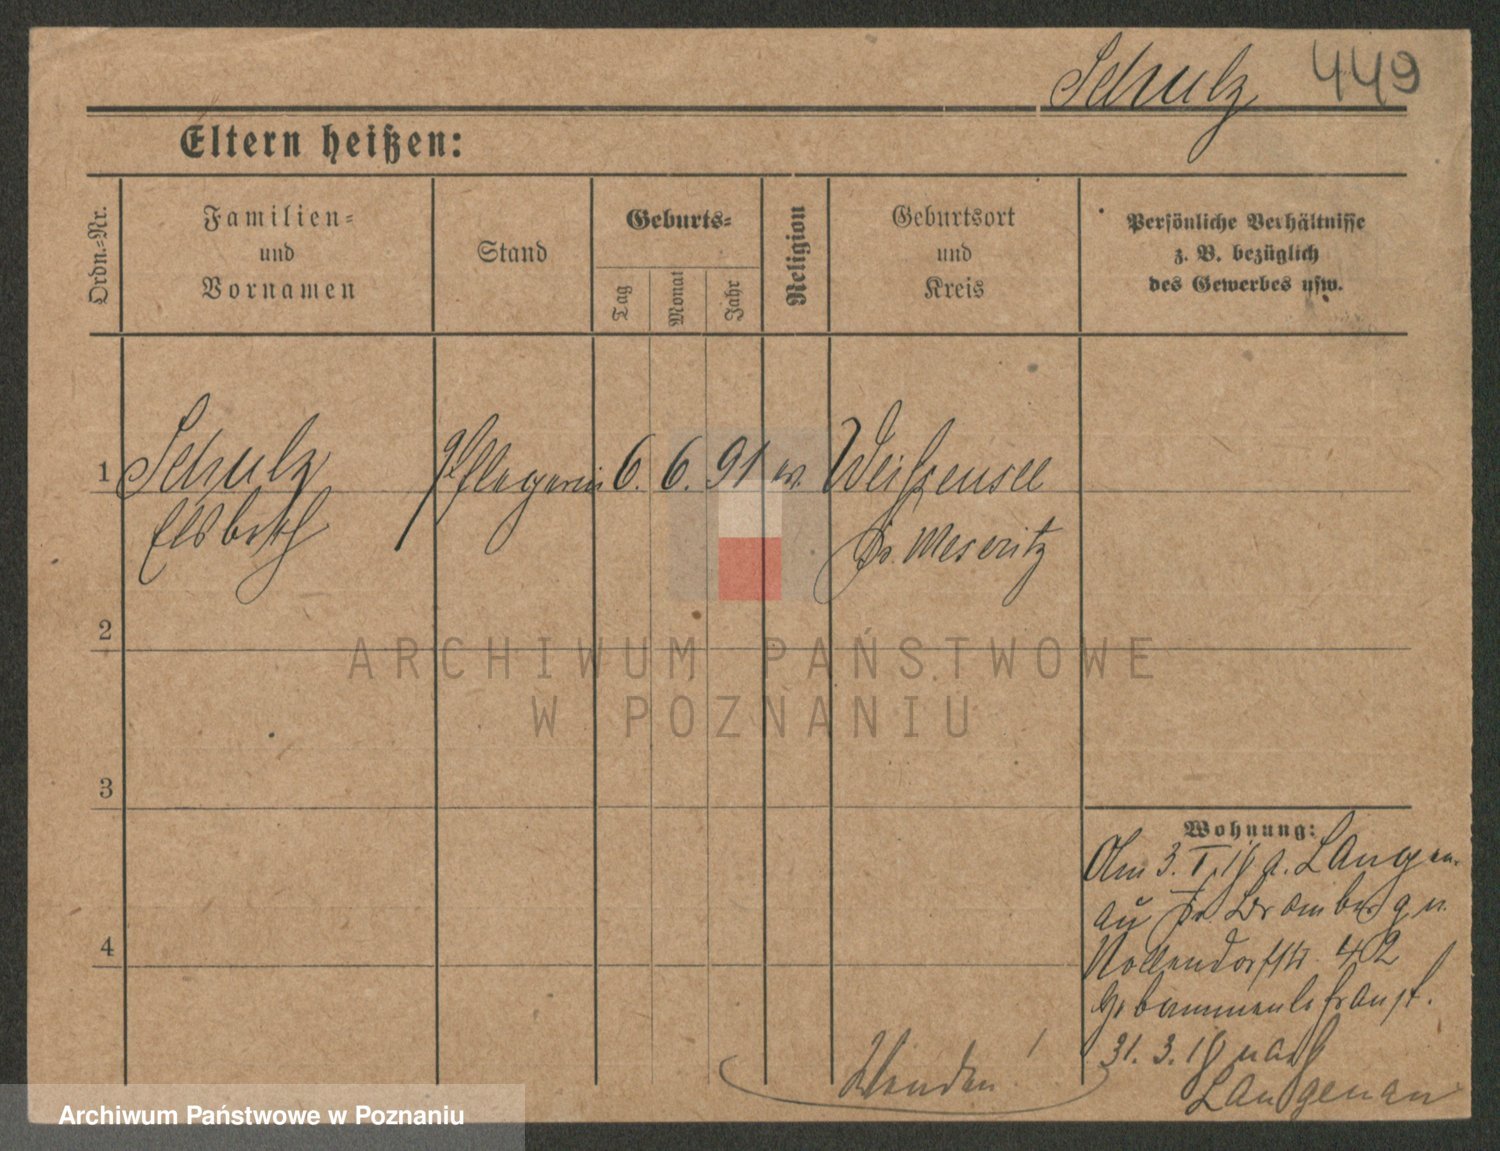 Schulz 449
Eltern heißen:
Ordn.-Nr.
Familien-
und
Vornamen
Stand
Geburts-
Tag
Monat
Jahr
Religion
Geburtsort
und
Kreis
Persönliche Verhältnisse
z. B. bezüglich
des Gewerbes usw.
1 Schulz Pflegerin 6. 6. 91 ev. Weißensee
Elsbeth Kr. Meseritz
2
3
4
Wohnung:
Am 3. I. 19 a. Langen-
au Kr. Bromberg n.
Nollendorfstr. 42
Hebammenlehranst.
31. 3. 19 nach
Langenau
Wenden!
ARCHIWUM PAŃSTWOWE
W POZNANIU
Archiwum Państwowe w Poznaniu